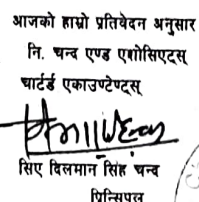 आजको हाम्रो प्रतिवेदन अनुसार
नि. चन्द एण्ड एशोसिएट्स्
चार्टर्ड एकाउण्टेण्ट्स्
सिए विलमान सिंह चन्द
प्रिन्सिपल